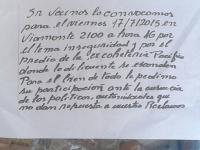 Sr Vecinos lo convocamos
para el viernes 17/7/2015 en
Viamonte 2100 a hora 16 por
el tema inseguridad y por el
predio de la excohetería Pacífico
donde el delincuente se esconden
Para el bien de todo le pedimo
su participacion ante la ausencia
de los politicos, autoridades que
no dan repuesta a nuestro Reclamos